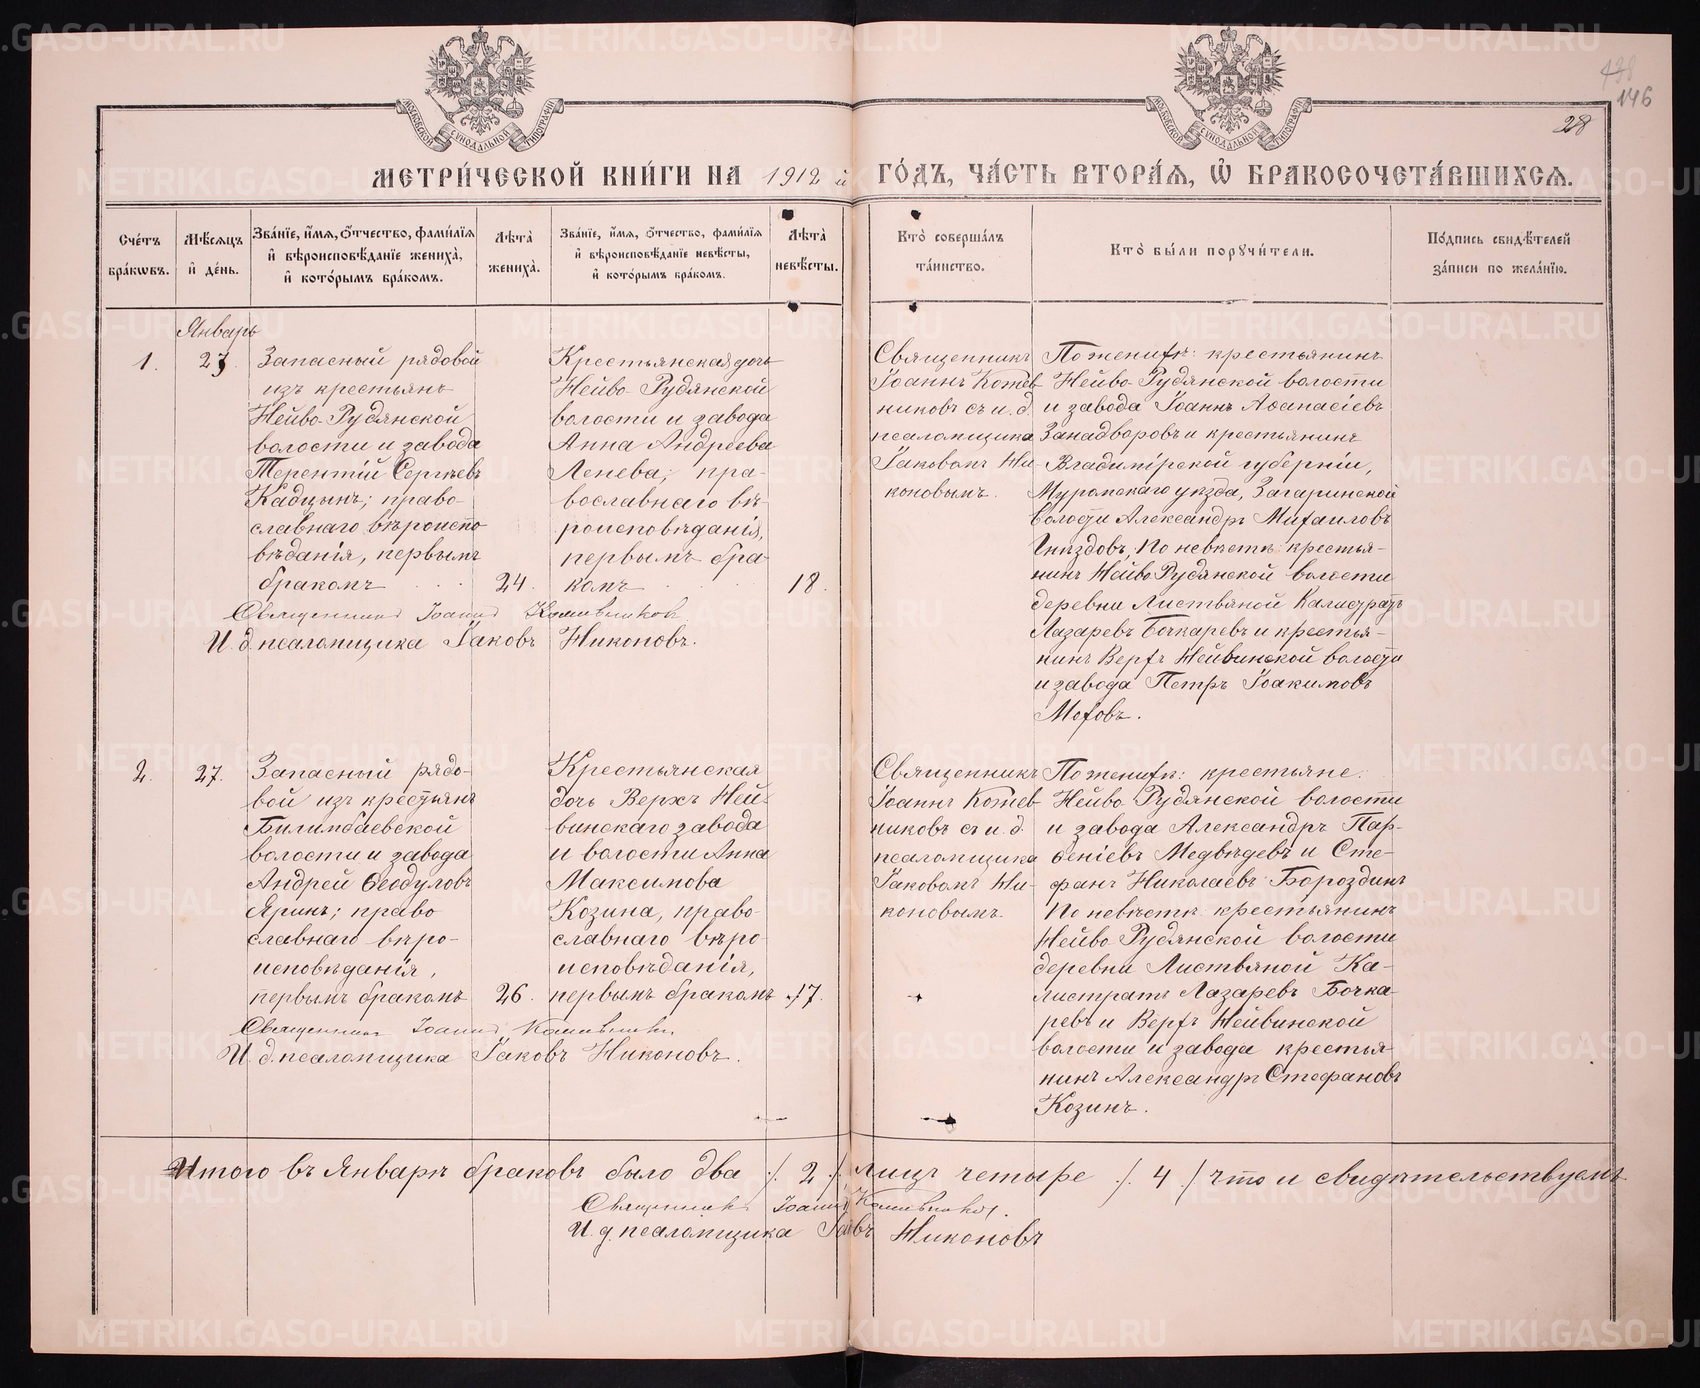 438
146
28
МЕТРИ́ЧЕСКОЙ КНИ́ГИ НА 1912 й ГО́ДЪ, ЧА́СТЬ ВТОРА́Я, Ѡ҆ БРАКОСОЧЕТА́ВШИХСѦ.
Сче́тъ бра́кѡвъ.
Мѣ́сяцъ и҆ де́нь.
Зва́нїе, и҆́мя, о҆́тчество, фами́лїя и҆ вѣроисповѣ́данїе жениха̀, и҆ кото́рымъ бра́комъ.
Лѣта̀ жениха̀.
Зва́нїе, и҆́мя, о҆́тчество, фами́лїя и҆ вѣроисповѣ́данїе невѣ́сты, и҆ кото́рымъ бра́комъ.
Лѣта̀ невѣ́сты.
Кто̀ соверша́лъ та́инство.
Кто̀ бы́ли поручи́тели.
По́дпись свидѣ́телей за́писи по жела́нїю.
Январь
1.
23.
Запасный рядовой
изъ крестьянъ
Нейво-Рудянской
волости и завода
Терентій Сергѣевъ
Кадцынъ; право-
славнаго вѣроиспо-
вѣданія, первымъ
бракомъ
24.
Крестьянская дочь
Нейво-Рудянской
волости и завода
Анна Андреева
Ленева; пра-
вославнаго вѣ-
роисповѣданія,
первымъ бра-
комъ
18.
Священникъ
Іоаннъ Котев-
никовъ съ и. д.
псаломщика
Іаковомъ Ни-
коновымъ.
По женихѣ: крестьянинъ
Нейво-Рудянской волости
и завода Іоаннъ Аѳанасіевъ
Занадворовъ и крестьянинъ
Владимірской губерніи,
Муромскаго уѣзда, Загаринской
волости Александръ Михаиловъ
Гнѣздовъ; По невѣстѣ: крестья-
нинъ Нейво Рудянской волости
деревни Листвяной Калистратъ
Лазаревъ Бочкаревъ и крестья-
нинъ Верхъ Нейвинской волости
и завода Петръ Іоакимовъ
Моховъ.
Священникъ Іоаннъ Котевников
И. д. псаломщика Іаковъ Никоновъ.
2.
27.
Запасный рядо-
вой изъ крестьянъ
Билимбаевской
волости и завода
Андрей Ѳеодуловъ
Яринъ; право-
славнаго вѣро-
исповѣданія,
первымъ бракомъ
26.
Крестьянская
дочь Верхъ Ней-
винскаго завода
и волости Анна
Максимова
Козина, право-
славнаго вѣро-
исповѣданія,
первымъ бракомъ
17.
Священникъ
Іоаннъ Котев-
никовъ съ и. д.
псаломщика
Іаковомъ Ни-
коновымъ.
По женихѣ: крестьяне
Нейво Рудянской волости
и завода Александръ Пар-
ѳеніевъ Медвѣдевъ и Сте-
фанъ Николаевъ Бороздинъ
По невѣстѣ: крестьянинъ
Нейво Рудянской волости
деревни Листвяной Ка-
листратъ Лазаревъ Бочка-
ревъ и Верхъ Нейвинской
волости и завода крестья-
нинъ Александръ Стефановъ
Козинъ.
Священникъ Іоаннъ Котевников
И. д. псаломщика Іаковъ Никоновъ.
Итого въ Январѣ браковъ было два /. 2 ./ лицъ четыре /. 4 ./ что и свидѣтельствуемъ
Священникъ Іоаннъ Котевников.
И. д. псаломщика Іаковъ Никоновъ
METRIKI.GASO-URAL.RU